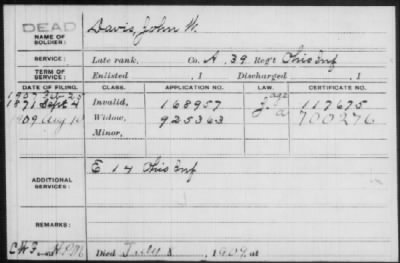 DEAD
NAME OF SOLDIER: Davis, John W.
SERVICE: Late rank, Co. A, 39 Reg't Ohio Inf
TERM OF SERVICE: Enlisted , 1 Discharged , 1
DATE OF FILING. CLASS. APPLICATION NO. LAW. CERTIFICATE NO.
1907 Feb 25 age
1871 Sept 4 Invalid, 168957 117675
1909 Aug 10 Widow, 925363 a 700276
Minor,
ADDITIONAL SERVICES: E 14 Ohio Inf
REMARKS:
Died July 1909, at